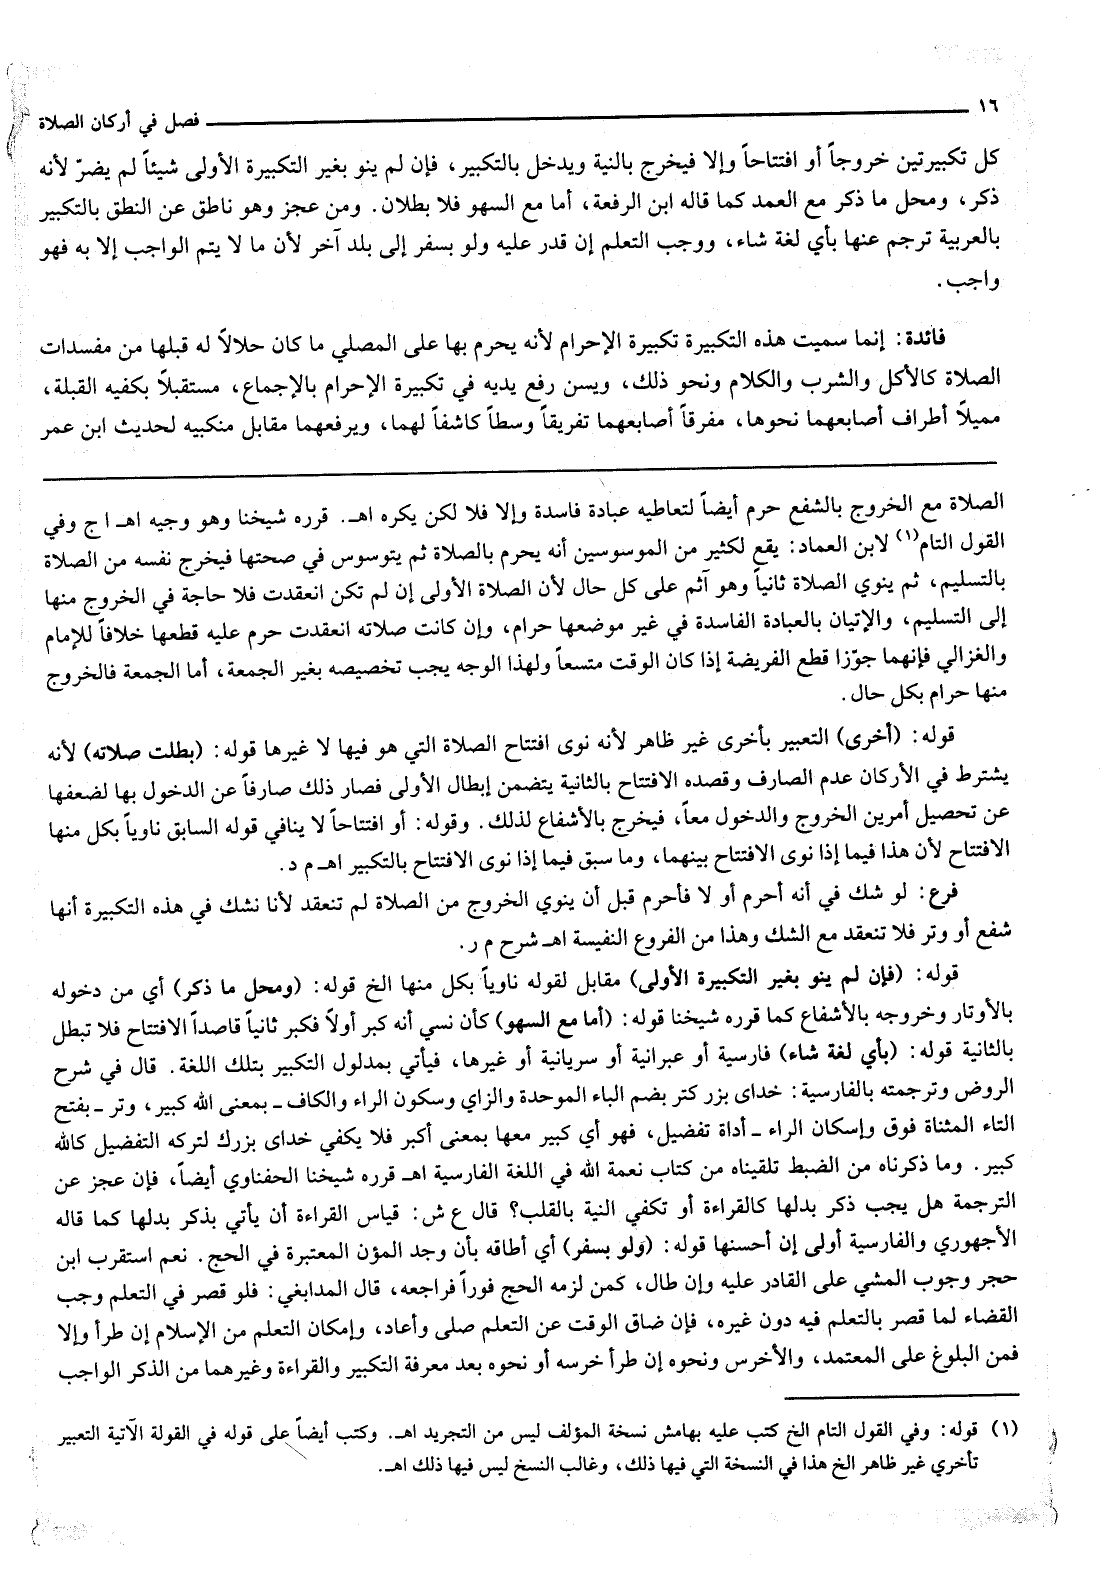 ١٦ فصل في أركان الصلاة
كل تكبيرتين خروجاً أو افتتاحاً وإلا فيخرج بالنية ويدخل بالتكبير، فإن لم ينو بغير التكبيرة الأولى شيئاً لم يضرّ لأنه
ذكر، ومحل ما ذكر مع العمد كما قاله ابن الرفعة، أما مع السهو فلا بطلان. ومن عجز وهو ناطق عن النطق بالتكبير
بالعربية ترجم عنها بأي لغة شاء، ووجب التعلم إن قدر عليه ولو بسفر إلى بلد آخر لأن ما لا يتم الواجب إلا به فهو
واجب.
فائدة: إنما سميت هذه التكبيرة تكبيرة الإحرام لأنه يحرم بها على المصلي ما كان حلالاً له قبلها من مفسدات
الصلاة كالأكل والشرب والكلام ونحو ذلك، ويسن رفع يديه في تكبيرة الإحرام بالإجماع، مستقبلاً بكفيه القبلة،
مميلاً أطراف أصابعهما نحوها، مفرقاً أصابعهما تفريقاً وسطاً كاشفاً لهما، ويرفعهما مقابل منكبيه لحديث ابن عمر
الصلاة مع الخروج بالشفع حرم أيضاً لتعاطيه عبادة فاسدة وإلا فلا لكن يكره اهـ. قرره شيخنا وهو وجيه اهـ ا ج وفي
القول التام(١) لابن العماد: يقع لكثير من الموسوسين أنه يحرم بالصلاة ثم يتوسوس في صحتها فيخرج نفسه من الصلاة
بالتسليم، ثم ينوي الصلاة ثانياً وهو آثم على كل حال لأن الصلاة الأولى إن لم تكن انعقدت فلا حاجة في الخروج منها
إلى التسليم، والإتيان بالعبادة الفاسدة في غير موضعها حرام، وإن كانت صلاته انعقدت حرم عليه قطعها خلافاً للإمام
والغزالي فإنهما جوّزا قطع الفريضة إذا كان الوقت متسعاً ولهذا الوجه يجب تخصيصه بغير الجمعة، أما الجمعة فالخروج
منها حرام بكل حال.
قوله: (أخرى) التعبير بأخرى غير ظاهر لأنه نوى افتتاح الصلاة التي هو فيها لا غيرها قوله: (بطلت صلاته) لأنه
يشترط في الأركان عدم الصارف وقصده الافتتاح بالثانية يتضمن إبطال الأولى فصار ذلك صارفاً عن الدخول بها لضعفها
عن تحصيل أمرين الخروج والدخول معاً، فيخرج بالأشفاع لذلك. وقوله: أو افتتاحاً لا ينافي قوله السابق ناوياً بكل منها
الافتتاح لأن هذا فيما إذا نوى الافتتاح بينهما، وما سبق فيما إذا نوى الافتتاح بالتكبير اهـ م د.
فرع: لو شك في أنه أحرم أو لا فأحرم قبل أن ينوي الخروج من الصلاة لم تنعقد لأنا نشك في هذه التكبيرة أنها
شفع أو وتر فلا تنعقد مع الشك وهذا من الفروع النفيسة اهـ شرح م ر.
قوله: (فإن لم ينو بغير التكبيرة الأولى) مقابل لقوله ناوياً بكل منها الخ قوله: (ومحل ما ذكر) أي من دخوله
بالأوتار وخروجه بالأشفاع كما قرره شيخنا قوله: (أما مع السهو) كأن نسي أنه كبر أولاً فكبر ثانياً قاصداً الافتتاح فلا تبطل
بالثانية قوله: (بأي لغة شاء) فارسية أو عبرانية أو سريانية أو غيرها، فيأتي بمدلول التكبير بتلك اللغة. قال في شرح
الروض وترجمته بالفارسية: خداى بزر كتر بضم الباء الموحدة والزاي وسكون الراء والكاف ـ بمعنى الله كبير، وتر ـ بفتح
التاء المثناة فوق وإسكان الراء ـ أداة تفضيل، فهو أي كبير معها بمعنى أكبر فلا يكفي خداى بزرك لتركه التفضيل كالله
كبير. وما ذكرناه من الضبط تلقيناه من كتاب نعمة الله في اللغة الفارسية اهـ قرره شيخنا الحفناوي أيضاً، فإن عجز عن
الترجمة هل يجب ذكر بدلها كالقراءة أو تكفي النية بالقلب؟ قال ع ش: قياس القراءة أن يأتي بذكر بدلها كما قاله
الأجهوري والفارسية أولى إن أحسنها قوله: (ولو بسفر) أي أطاقه بأن وجد المؤن المعتبرة في الحج. نعم استقرب ابن
حجر وجوب المشي على القادر عليه وإن طال، كمن لزمه الحج فوراً فراجعه، قال المدابغي: فلو قصر في التعلم وجب
القضاء لما قصر بالتعلم فيه دون غيره، فإن ضاق الوقت عن التعلم صلى وأعاد، وإمكان التعلم من الإسلام إن طرأ وإلا
فمن البلوغ على المعتمد، والأخرس ونحوه إن طرأ خرسه أو نحوه بعد معرفة التكبير والقراءة وغيرهما من الذكر الواجب
(١) قوله: وفي القول التام الخ كتب عليه بهامش نسخة المؤلف ليس من التجريد اهـ. وكتب أيضاً على قوله في القولة الآتية التعبير
تأخري غير ظاهر الخ هذا في النسخة التي فيها ذلك، وغالب النسخ ليس فيها ذلك اهـ.